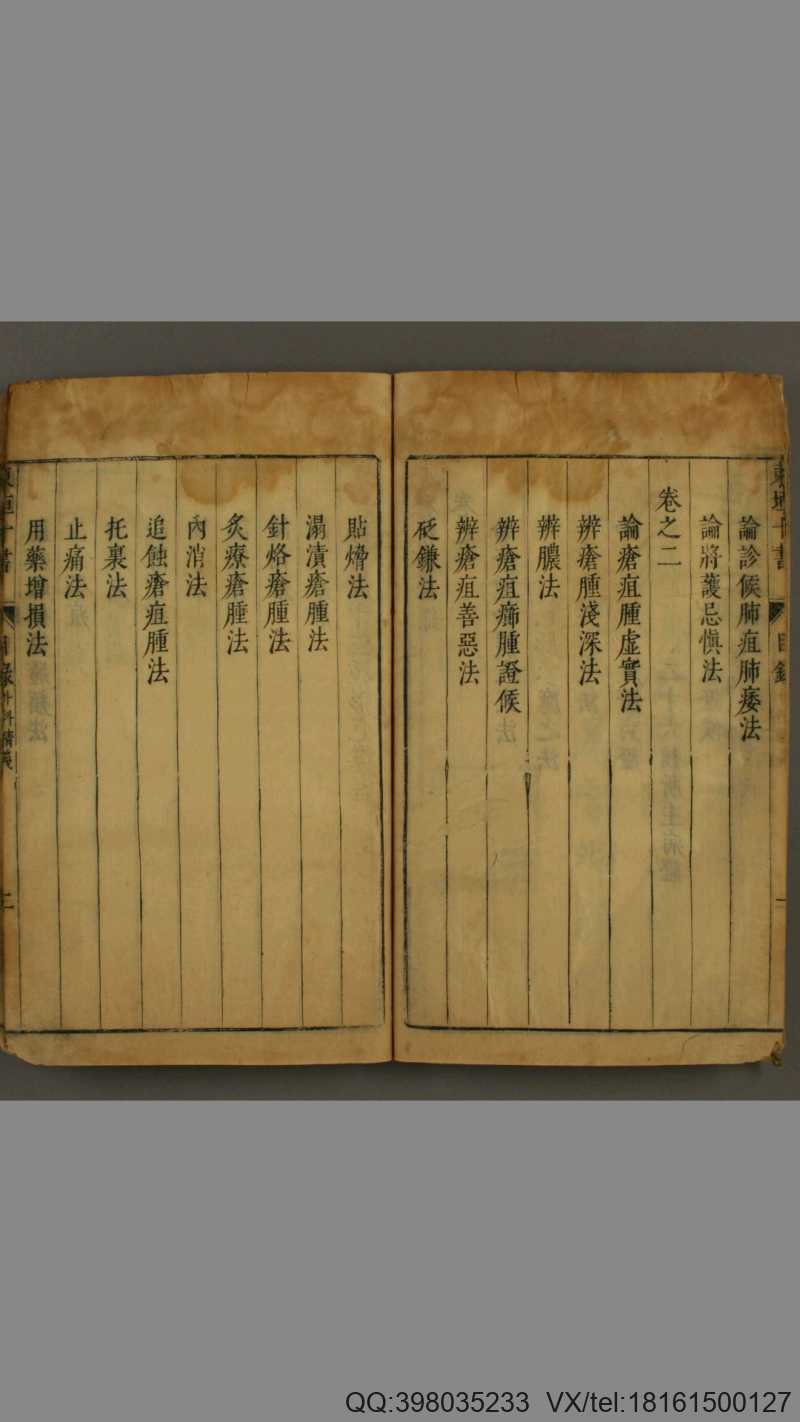 東垣十書 目錄
論診候肺疽肺痿法
論將護忌慎法
卷之二
論瘡疽腫虛實法
辨瘡腫淺深法
辨膿法
辨瘡疽癤腫證候
辨瘡疽善惡法
砭鎌法
貼熁法
溻漬瘡腫法
針烙瘡腫法
灸療瘡腫法
內消法
追蝕瘡疽腫法
托裏法
止痛法
用藥增損法
東垣十書 目錄 外科精義 二
QQ:398035233 VX/tel:18161500127